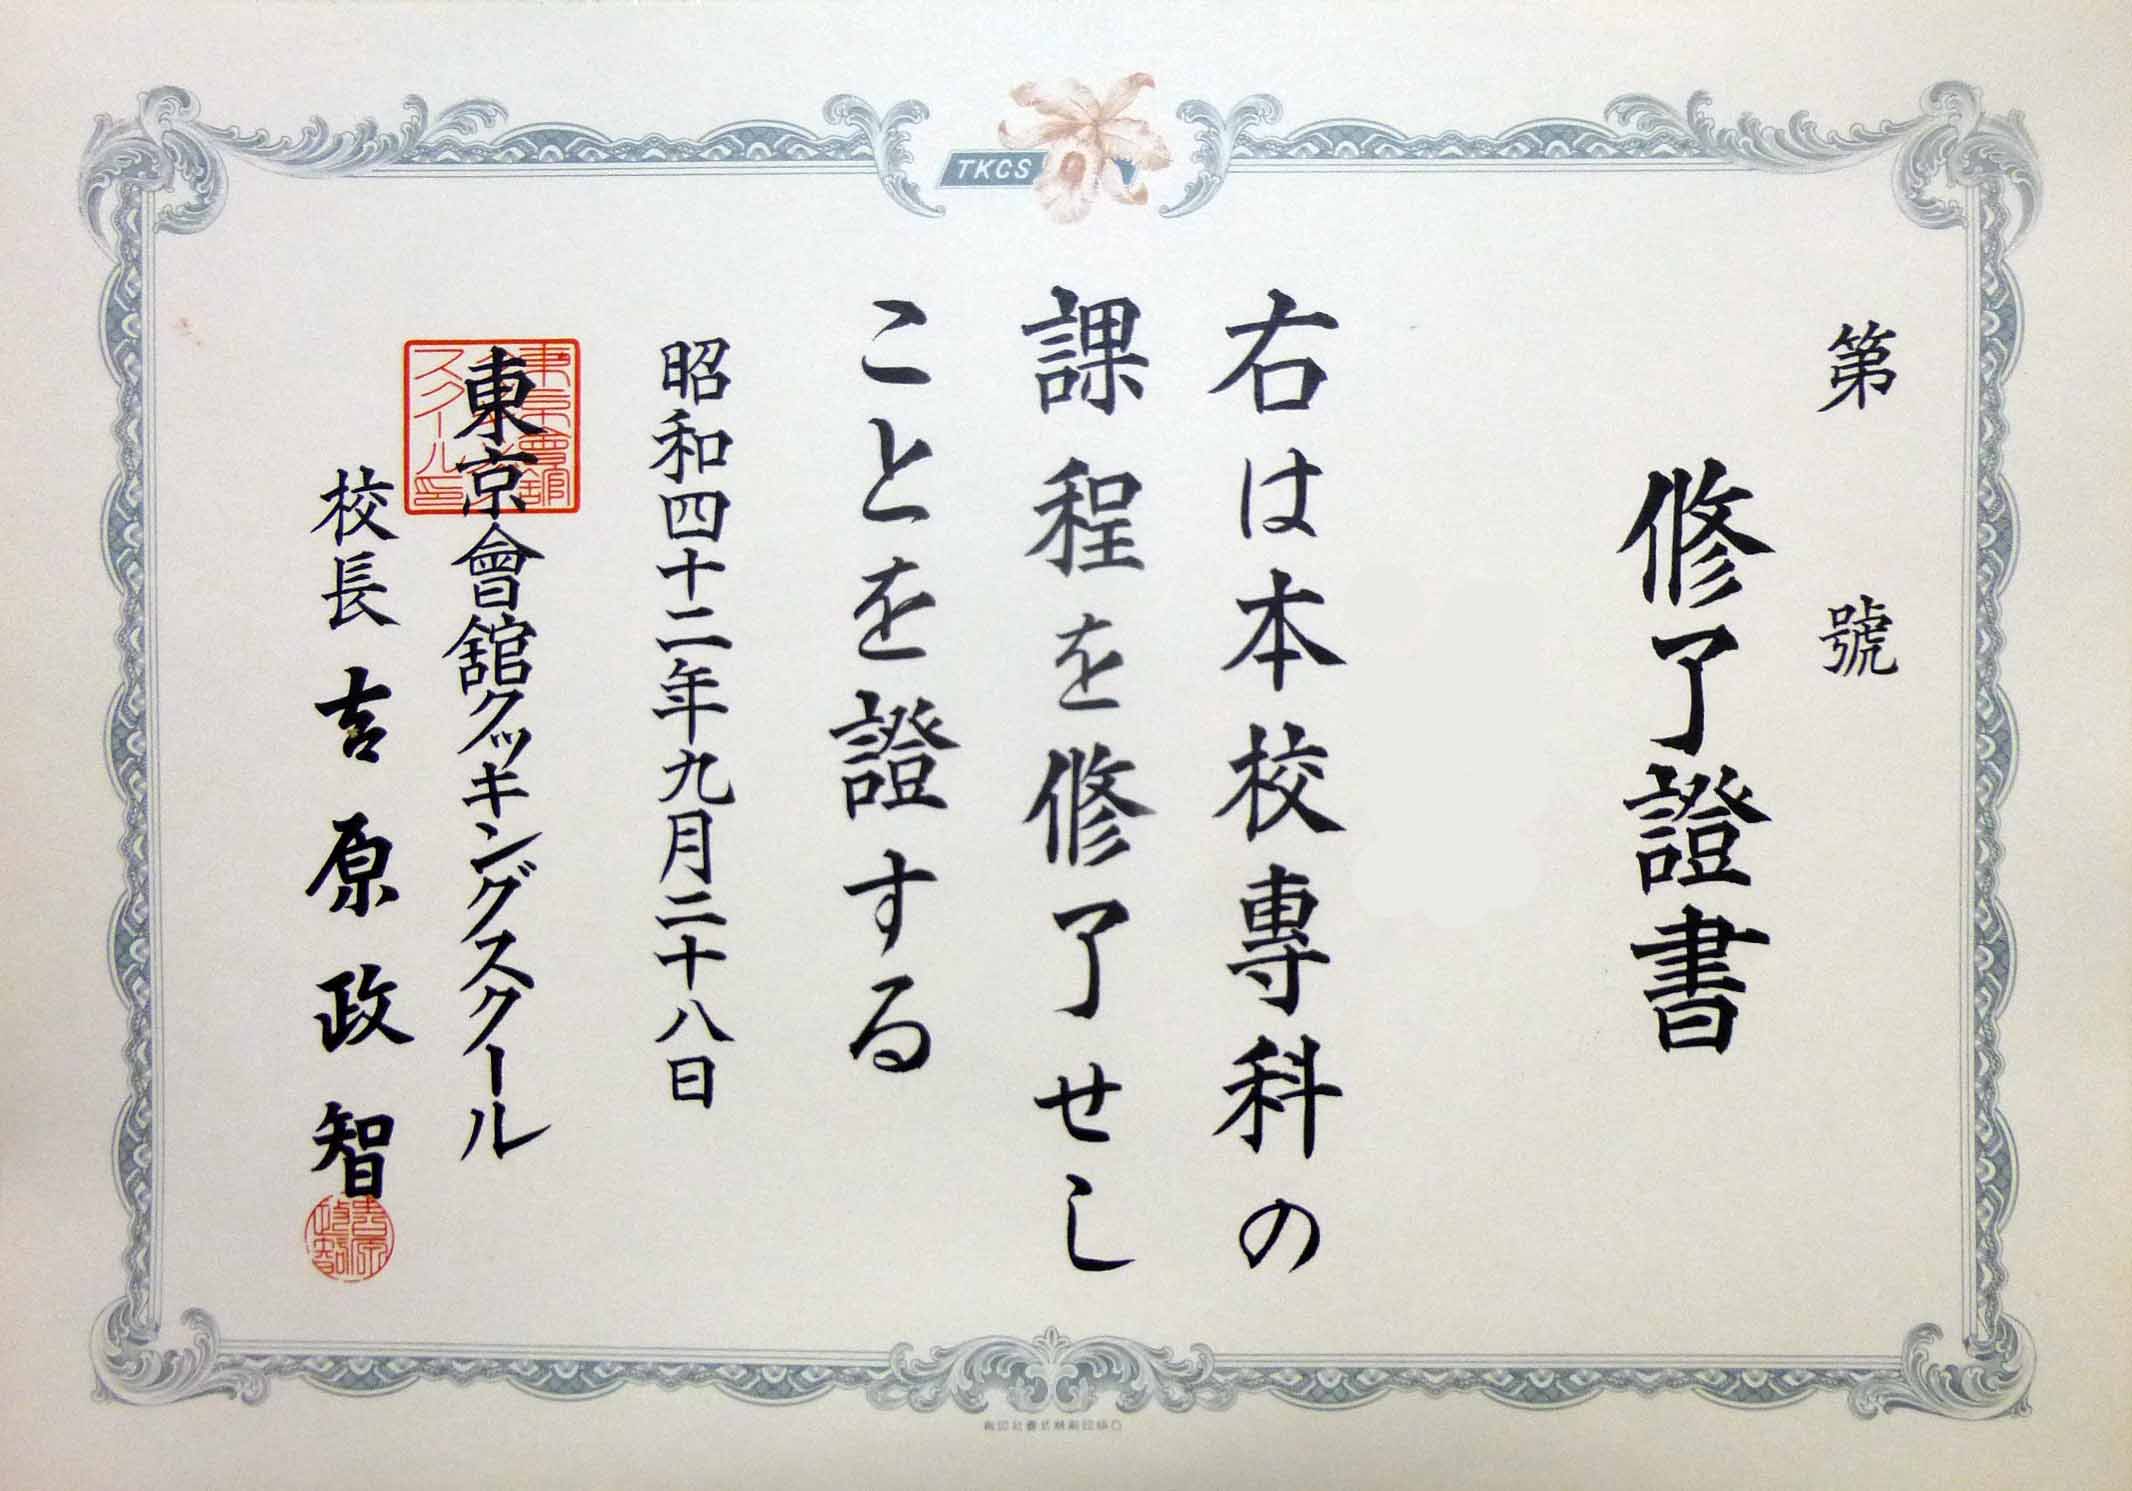 TKCS
第 號
修了證書
右は本校專科の
課程を修了せし
ことを證する
昭和四十二年九月二十八日
東京會舘クッキングスクール
校長 吉原政智